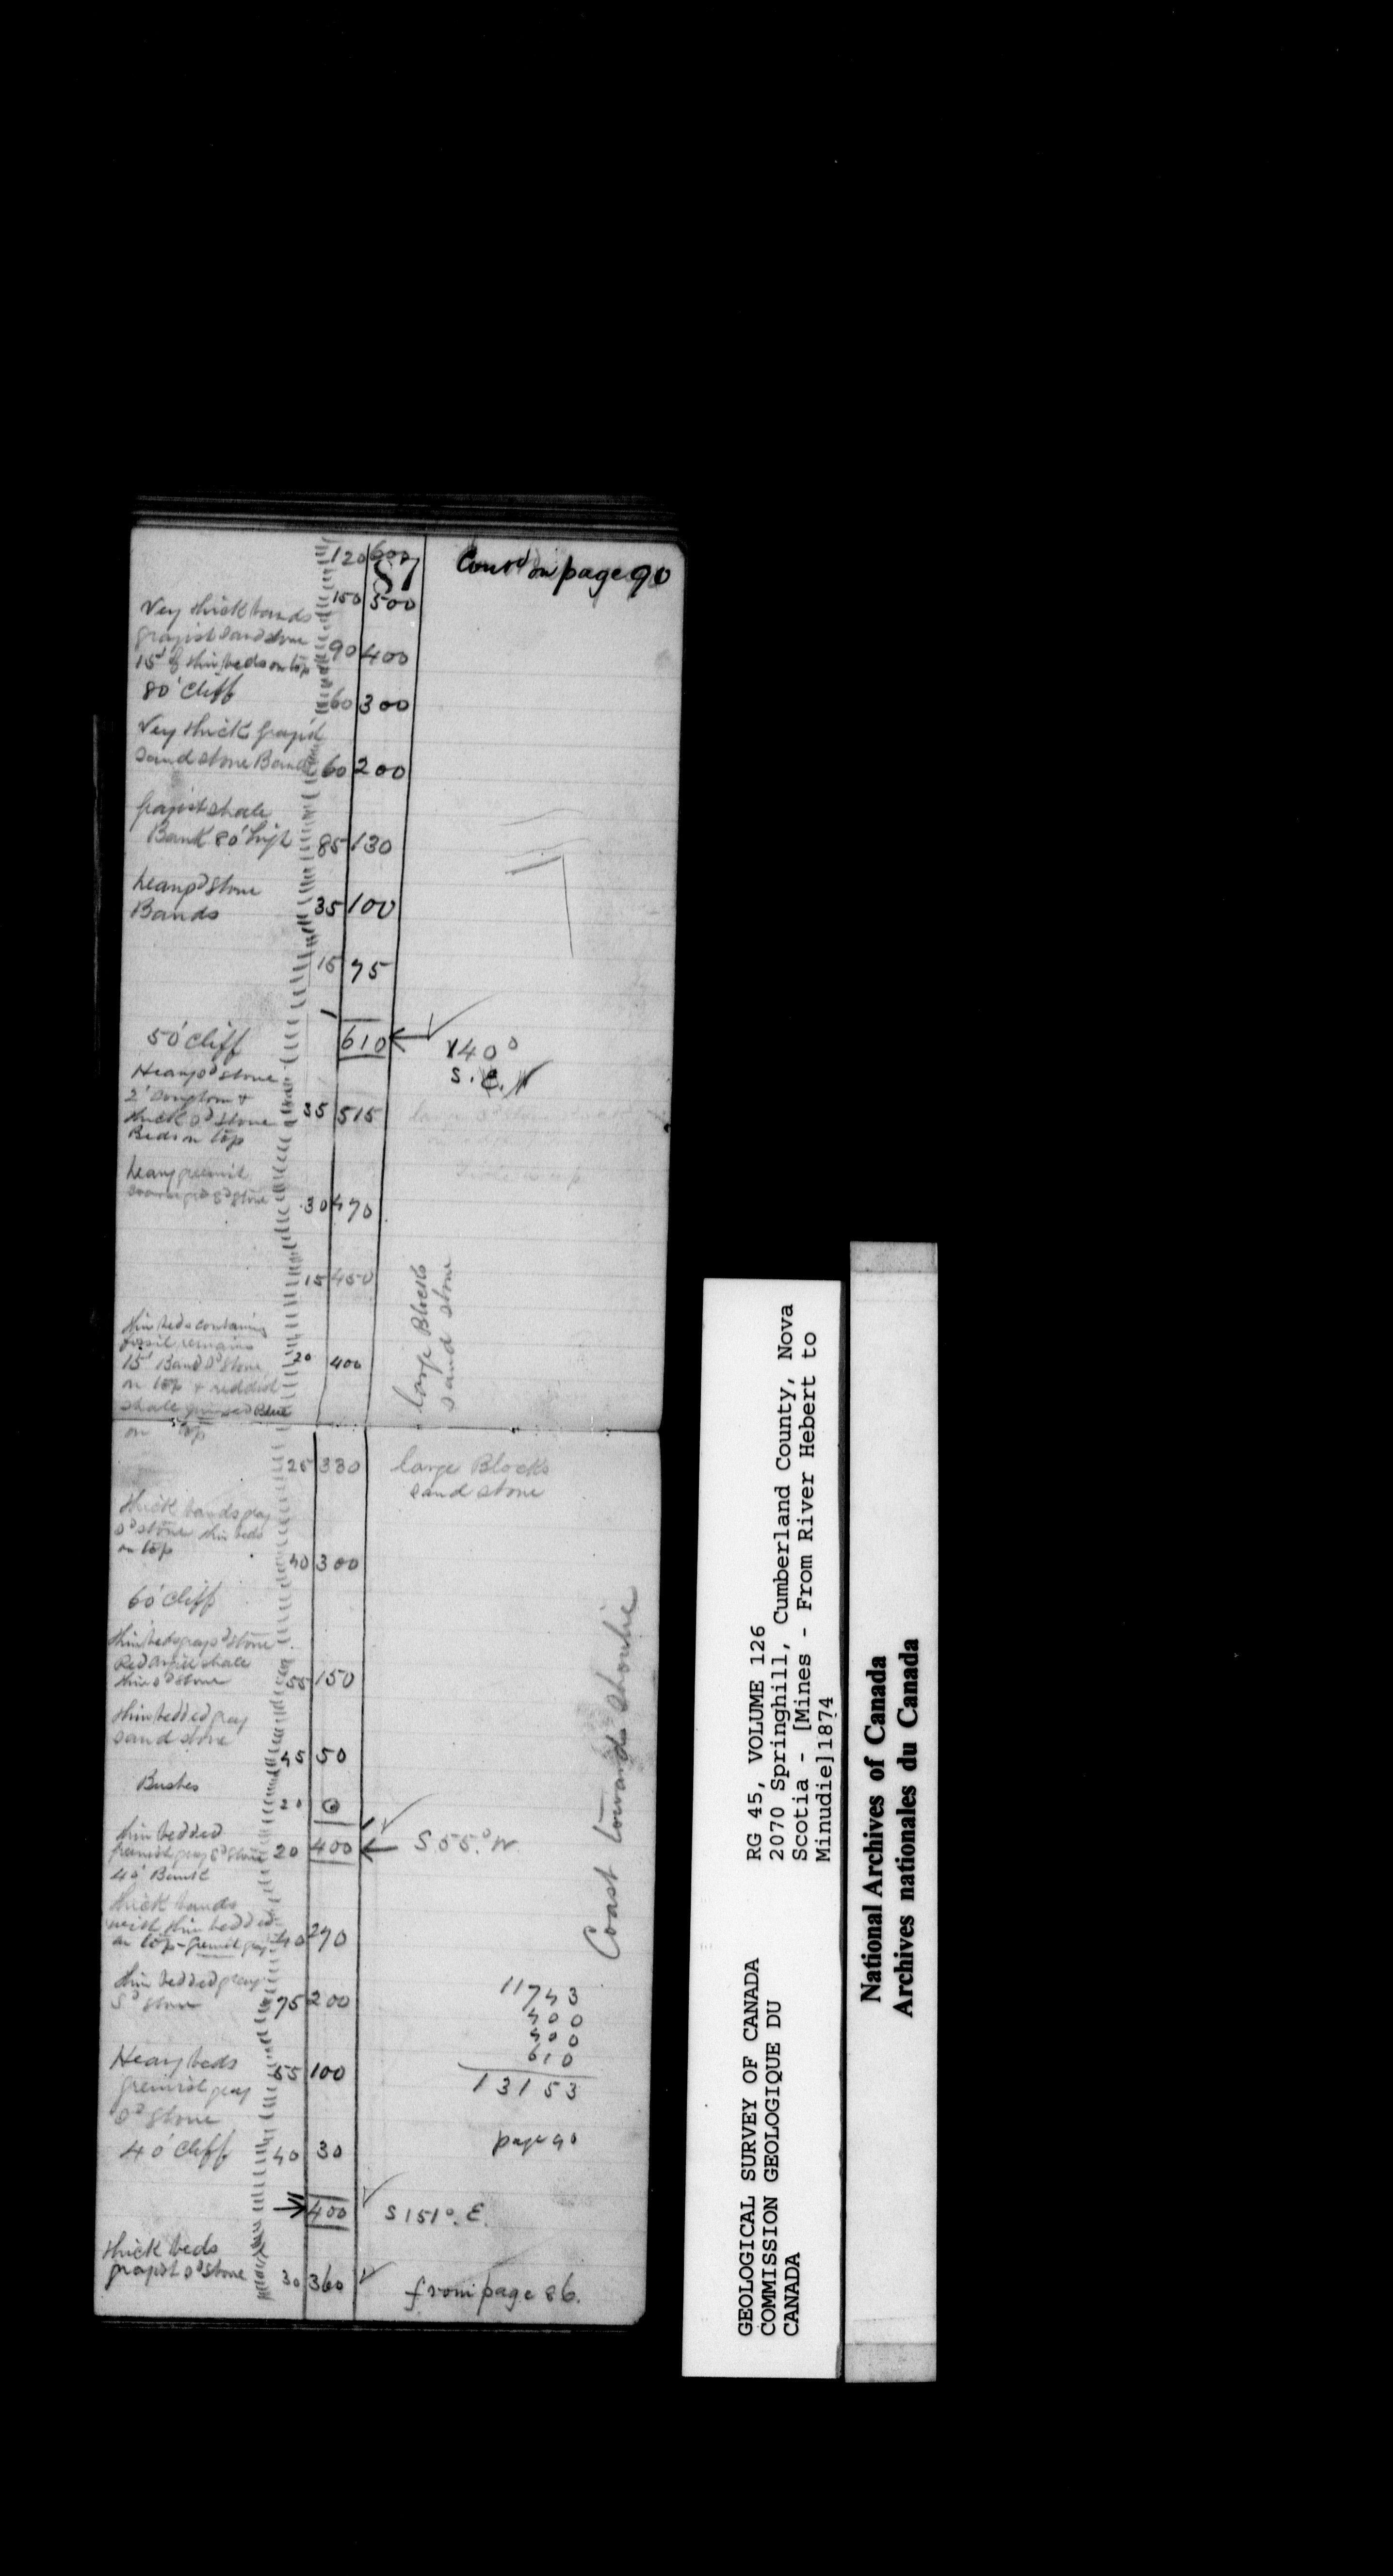 120 600
87
Cont'd on page 90
150 500
Very thick bands
grayish sandstone
90 400
15' of thin beds on top
80' Cliff
60 300
Very thick gray'd
sandstone Bands 60 200
grayish shale
Bank 80' high 85 130
heavy sd stone
Bands 35 100
15 75
50' Cliff
610
140°
S. E.
Heavy sd stone
2' conglom &
thick sd stone
Beds on top
35 515
heavy greenish
sd stone
30 470
15 450
large Blocks
sand stone
thin beds containing
fossil remains
15' Band sd stone
20 400
on top & reddish
shale Blue
on top
25 330
large Blocks
sand stone
thick bands gray
sd stone thin beds
on top
40 300
60' Cliff
thin beds gray sd stone
Red argill shale
thin sd stone
55 150
thin bedded gray
sand stone
45 50
Bushes
20 0
thin bedded
greenish gray sd stone 20 400
S 55° W.
40' Bank
thick bands
with thin bedded
on top - greenish gray 40 270
Coast towards Shoulie
thin bedded gray
sd stone 75 200
11743
400
400
610
13153
page 90
Heavy beds
greenish gray
sd stone
55 100
40' Cliff 40 30
400
S 151° E.
thick beds
grayish sd stone 30 360
from page 86.
GEOLOGICAL SURVEY OF CANADA
COMMISSION GEOLOGIQUE DU
CANADA
RG 45, VOLUME 126
2070 Springhill, Cumberland County, Nova
Scotia - [Mines - From River Hebert to
Minudie]1874
National Archives of Canada
Archives nationales du Canada